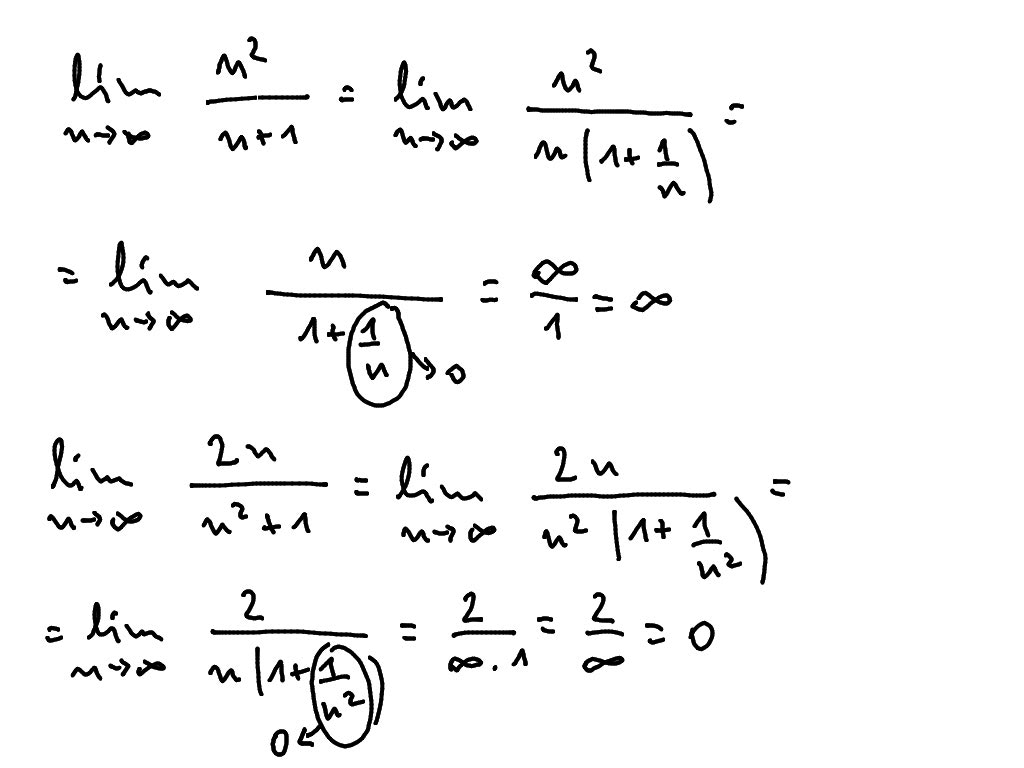 lim n→∞ n²/(n+1) = lim n→∞ n²/(n(1+1/n)) =
= lim n→∞ n/(1+1/n) →0 = ∞/1 = ∞
lim n→∞ 2n/(n²+1) = lim n→∞ 2n/(n²(1+1/n²)) =
= lim n→∞ 2/(n(1+1/n²)) = 2/(∞·1) = 2/∞ = 0
0←